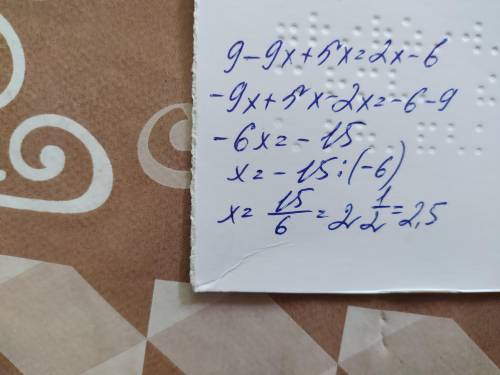 9-9x+5x=2x-6
-9x+5x-2x=-6-9
-6x=-15
x=-15:(-6)
x=15/6=2 1/2=2,5